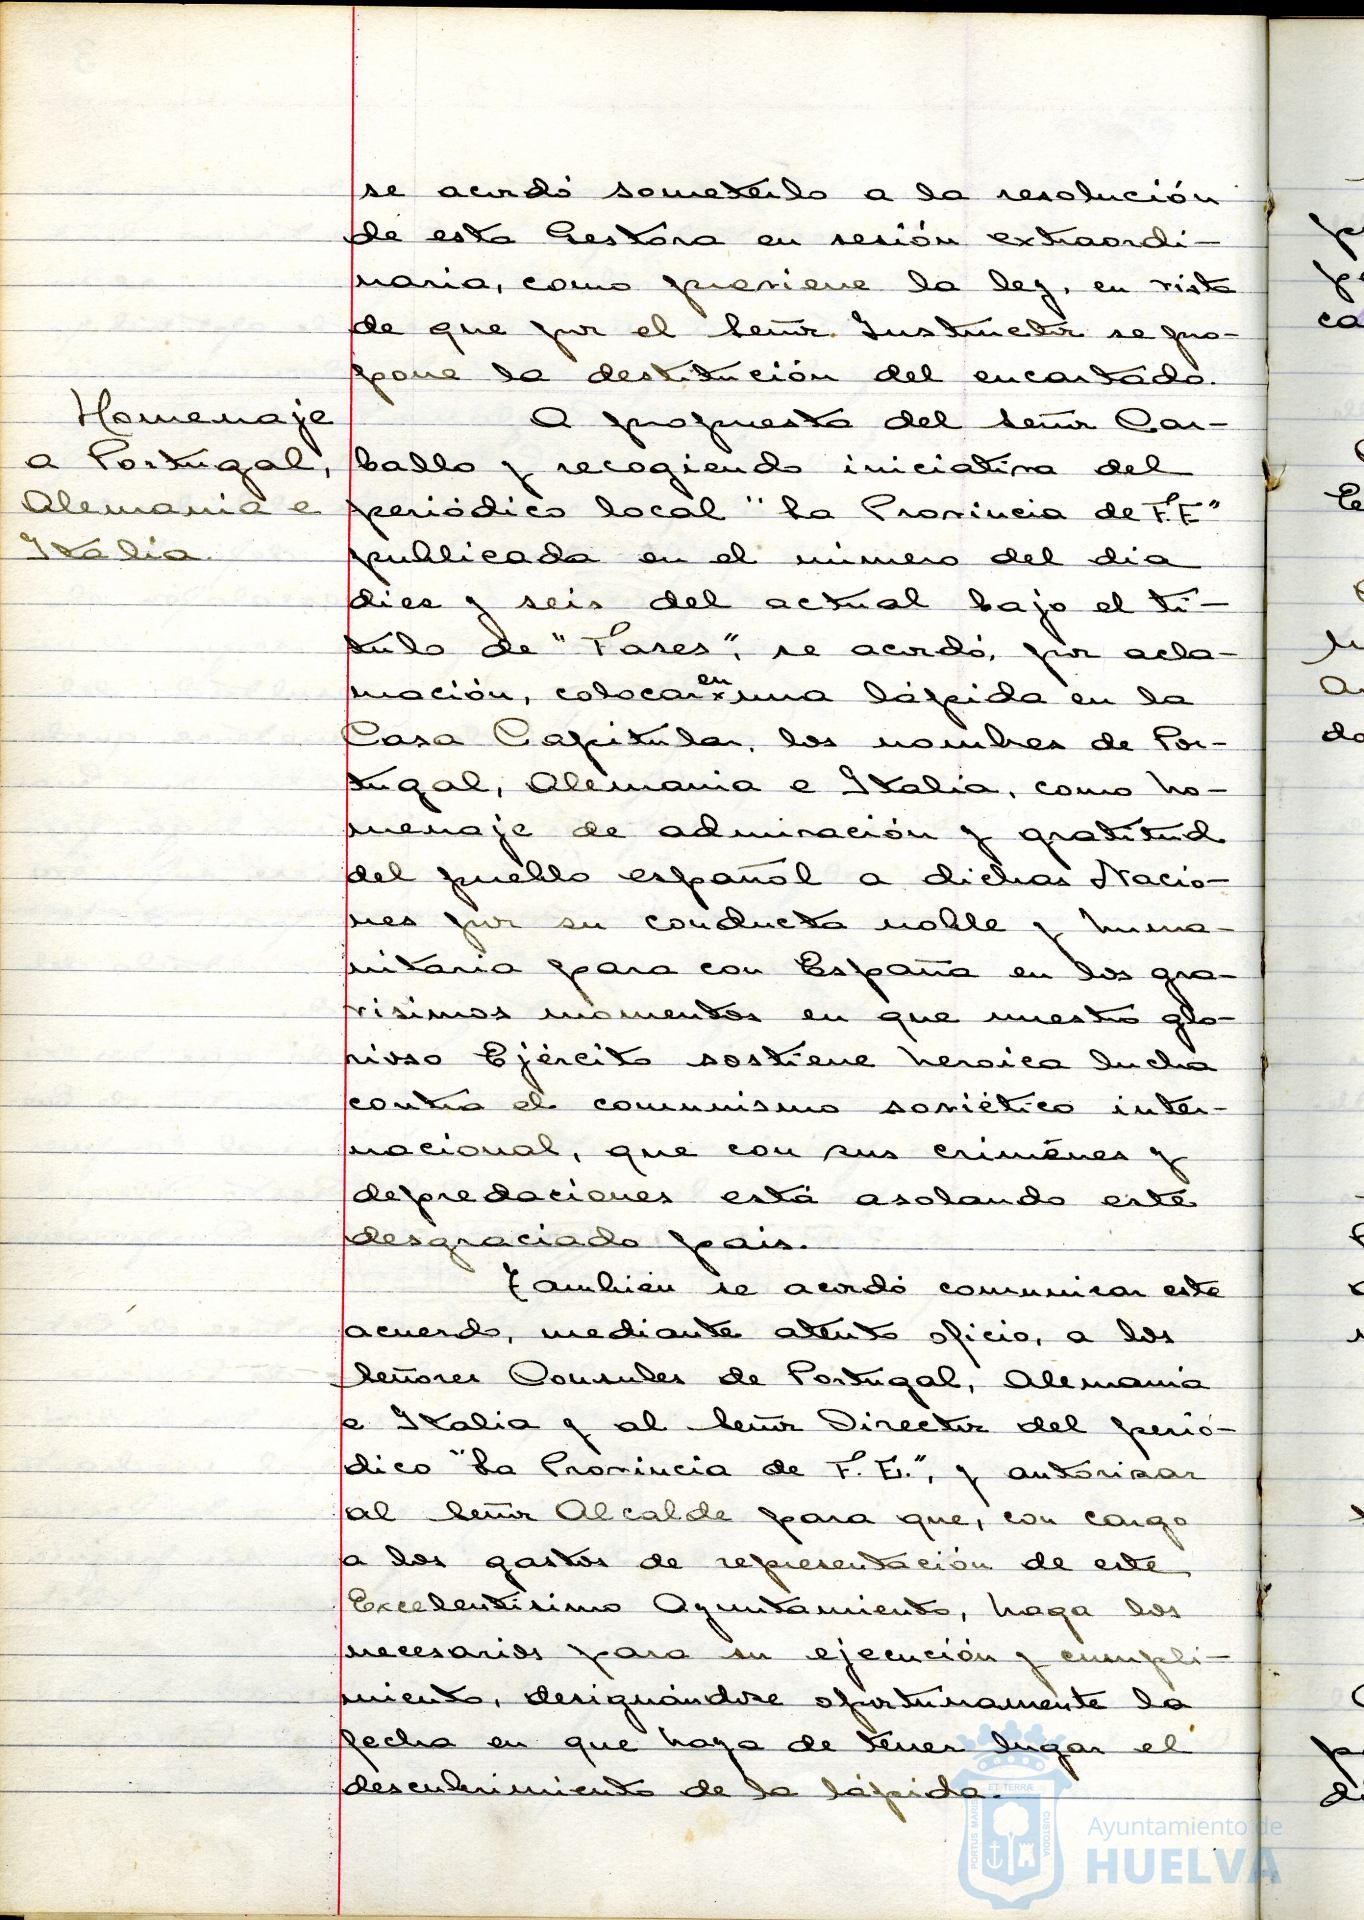 se acordó someterlo a la resolución
de esta Gestora en sesión extraordi-
naria, como previene la ley, en vista
de que por el Señor Instructor se pro-
pone la destitución del encartado.
Homenaje
a Portugal,
Alemania e
Italia.
A propuesta del Señor Car-
ballo y recogiendo iniciativa del
periódico local "La Provincia de F.E"
publicada en el número del dia
diez y seis del actual bajo el tí-
tulo de "Fases", se acordó, por acla-
mación, colocar en una lápida en la
Casa Capitular, los nombres de Por-
tugal, Alemania e Italia, como ho-
menaje de admiración y gratitud
del pueblo español a dichas Nacio-
nes por su conducta noble y huma-
nitaria para con España en los gra-
visimos momentos en que nuestro glo-
rioso Ejército sostiene heroica lucha
contra el comunismo soviético inter-
nacional, que con sus crimenes y
depredaciones está asolando este
desgraciado pais.
También se acordó comunicar este
acuerdo, mediante atento oficio, a los
Señores Consules de Portugal, Alemania
e Italia y al Señor Director del perió-
dico "La Provincia de F. E.", y autorizar
al Señor Alcalde para que, con cargo
a los gastos de representación de este
Excelentisimo Ayuntamiento, haga los
necesarios para su ejecución y cumpli-
miento, designándose oportunamente la
fecha en que haya de tener lugar el
descubrimiento de la lápida.
ET TERRÆ
PORTUS MARIS
CUSTODIA
Ayuntamiento de
HUELVA